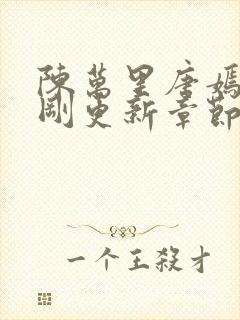 陳萬里唐嫣
剛更新章節
一个王殺才